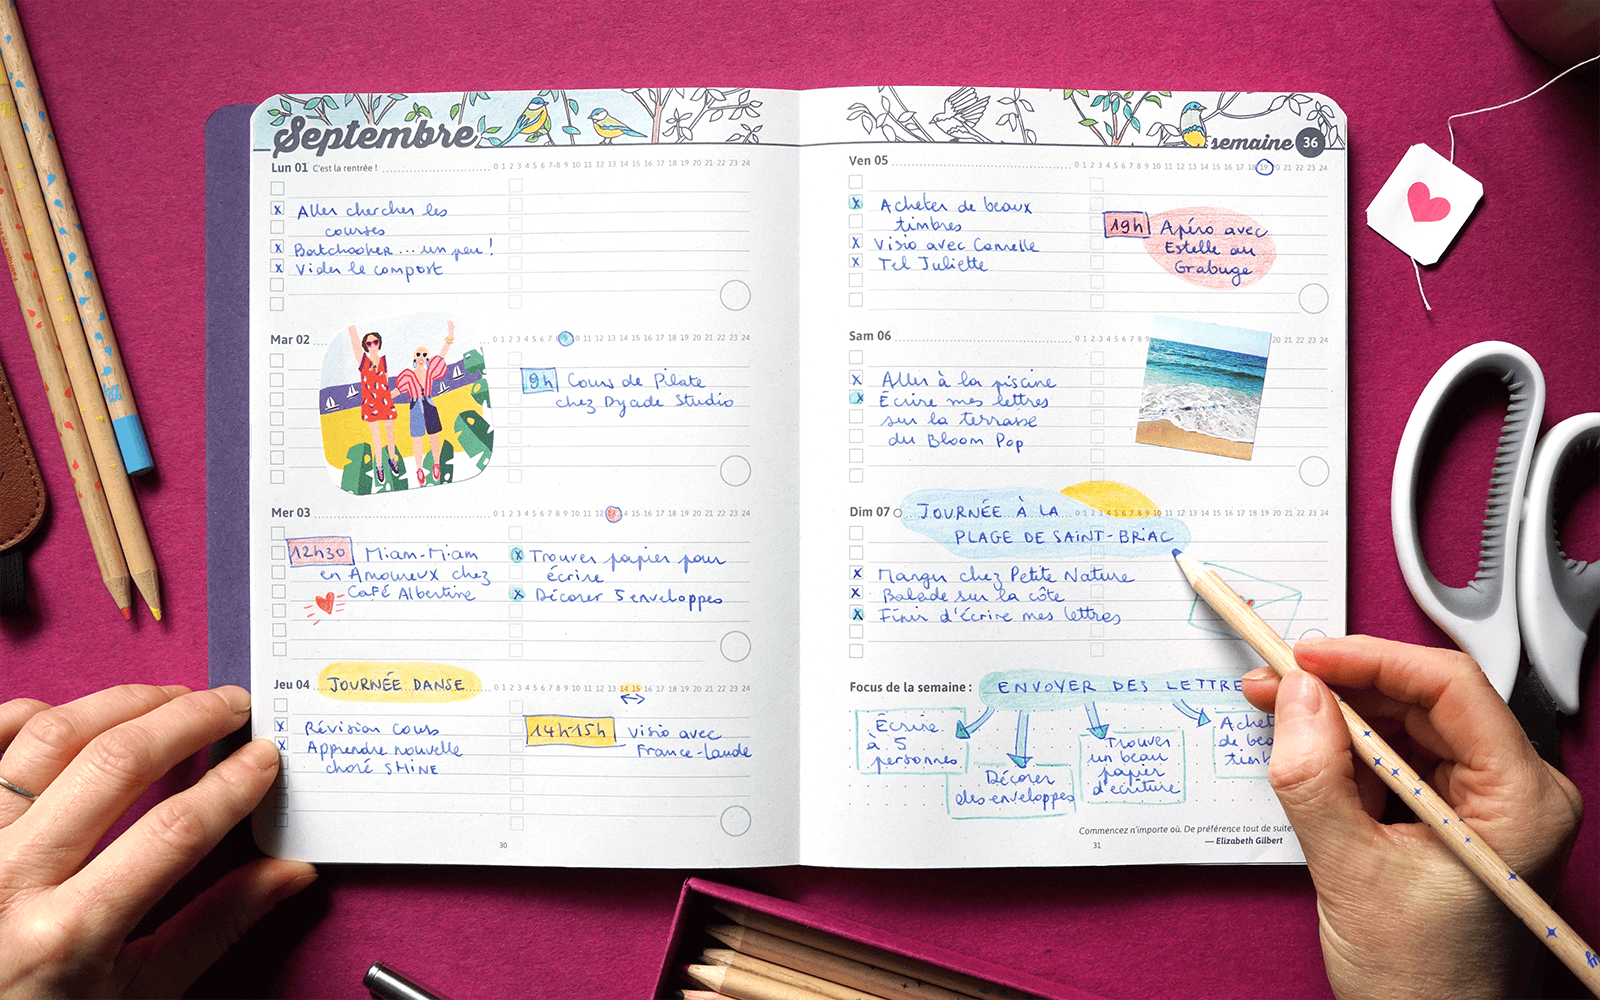 Septembre
Lun 01 C'est la rentrée !
0 1 2 3 4 5 6 7 8 9 10 11 12 13 14 15 16 17 18 19 20 21 22 23 24
x Aller chercher les
courses
x Batchcooker ... un peu !
x Vider le compost
Mar 02
0 1 2 3 4 5 6 7 8 9 10 11 12 13 14 15 16 17 18 19 20 21 22 23 24
9h Cours de Pilate
chez Dyade Studio
Mer 03
0 1 2 3 4 5 6 7 8 9 10 11 12 13 14 15 16 17 18 19 20 21 22 23 24
12h30 Miam-Miam
en Amoureux chez
Café Albertine
x Trouver papier pour
écrire
x Décorer 5 enveloppes
Jeu 04 JOURNÉE DANSE
0 1 2 3 4 5 6 7 8 9 10 11 12 13 14 15 16 17 18 19 20 21 22 23 24
x Révision cours
x Apprendre nouvelle
choré SHINE
14h-15h Visio avec
France-Laude
30
semaine 36
Ven 05
0 1 2 3 4 5 6 7 8 9 10 11 12 13 14 15 16 17 18 19 20 21 22 23 24
x Acheter de beaux
timbres
x Visio avec Cannelle
x Tel Juliette
19h Apéro avec
Estelle au
Grabuge
Sam 06
x Aller à la piscine
x Écrire mes lettres
sur la terrasse
du Bloom Pop
Dim 07 JOURNÉE À LA
0 1 2 3 4 5 6 7 8 9 10 11 12 13 14 15 16 17 18 19 20 21 22 23 24
PLAGE DE SAINT-BRIAC
x Manger chez Petite Nature
x Balade sur la côte
x Finir d'écrire mes lettres
Focus de la semaine : ENVOYER DES LETTRE
Écrire
à 5
personnes
Décorer
des enveloppes
Trouver
un beau
papier
d'écriture
Achet
de bea
timb
Commencez n'importe où. De préférence tout de suite.
— Elizabeth Gilbert
31